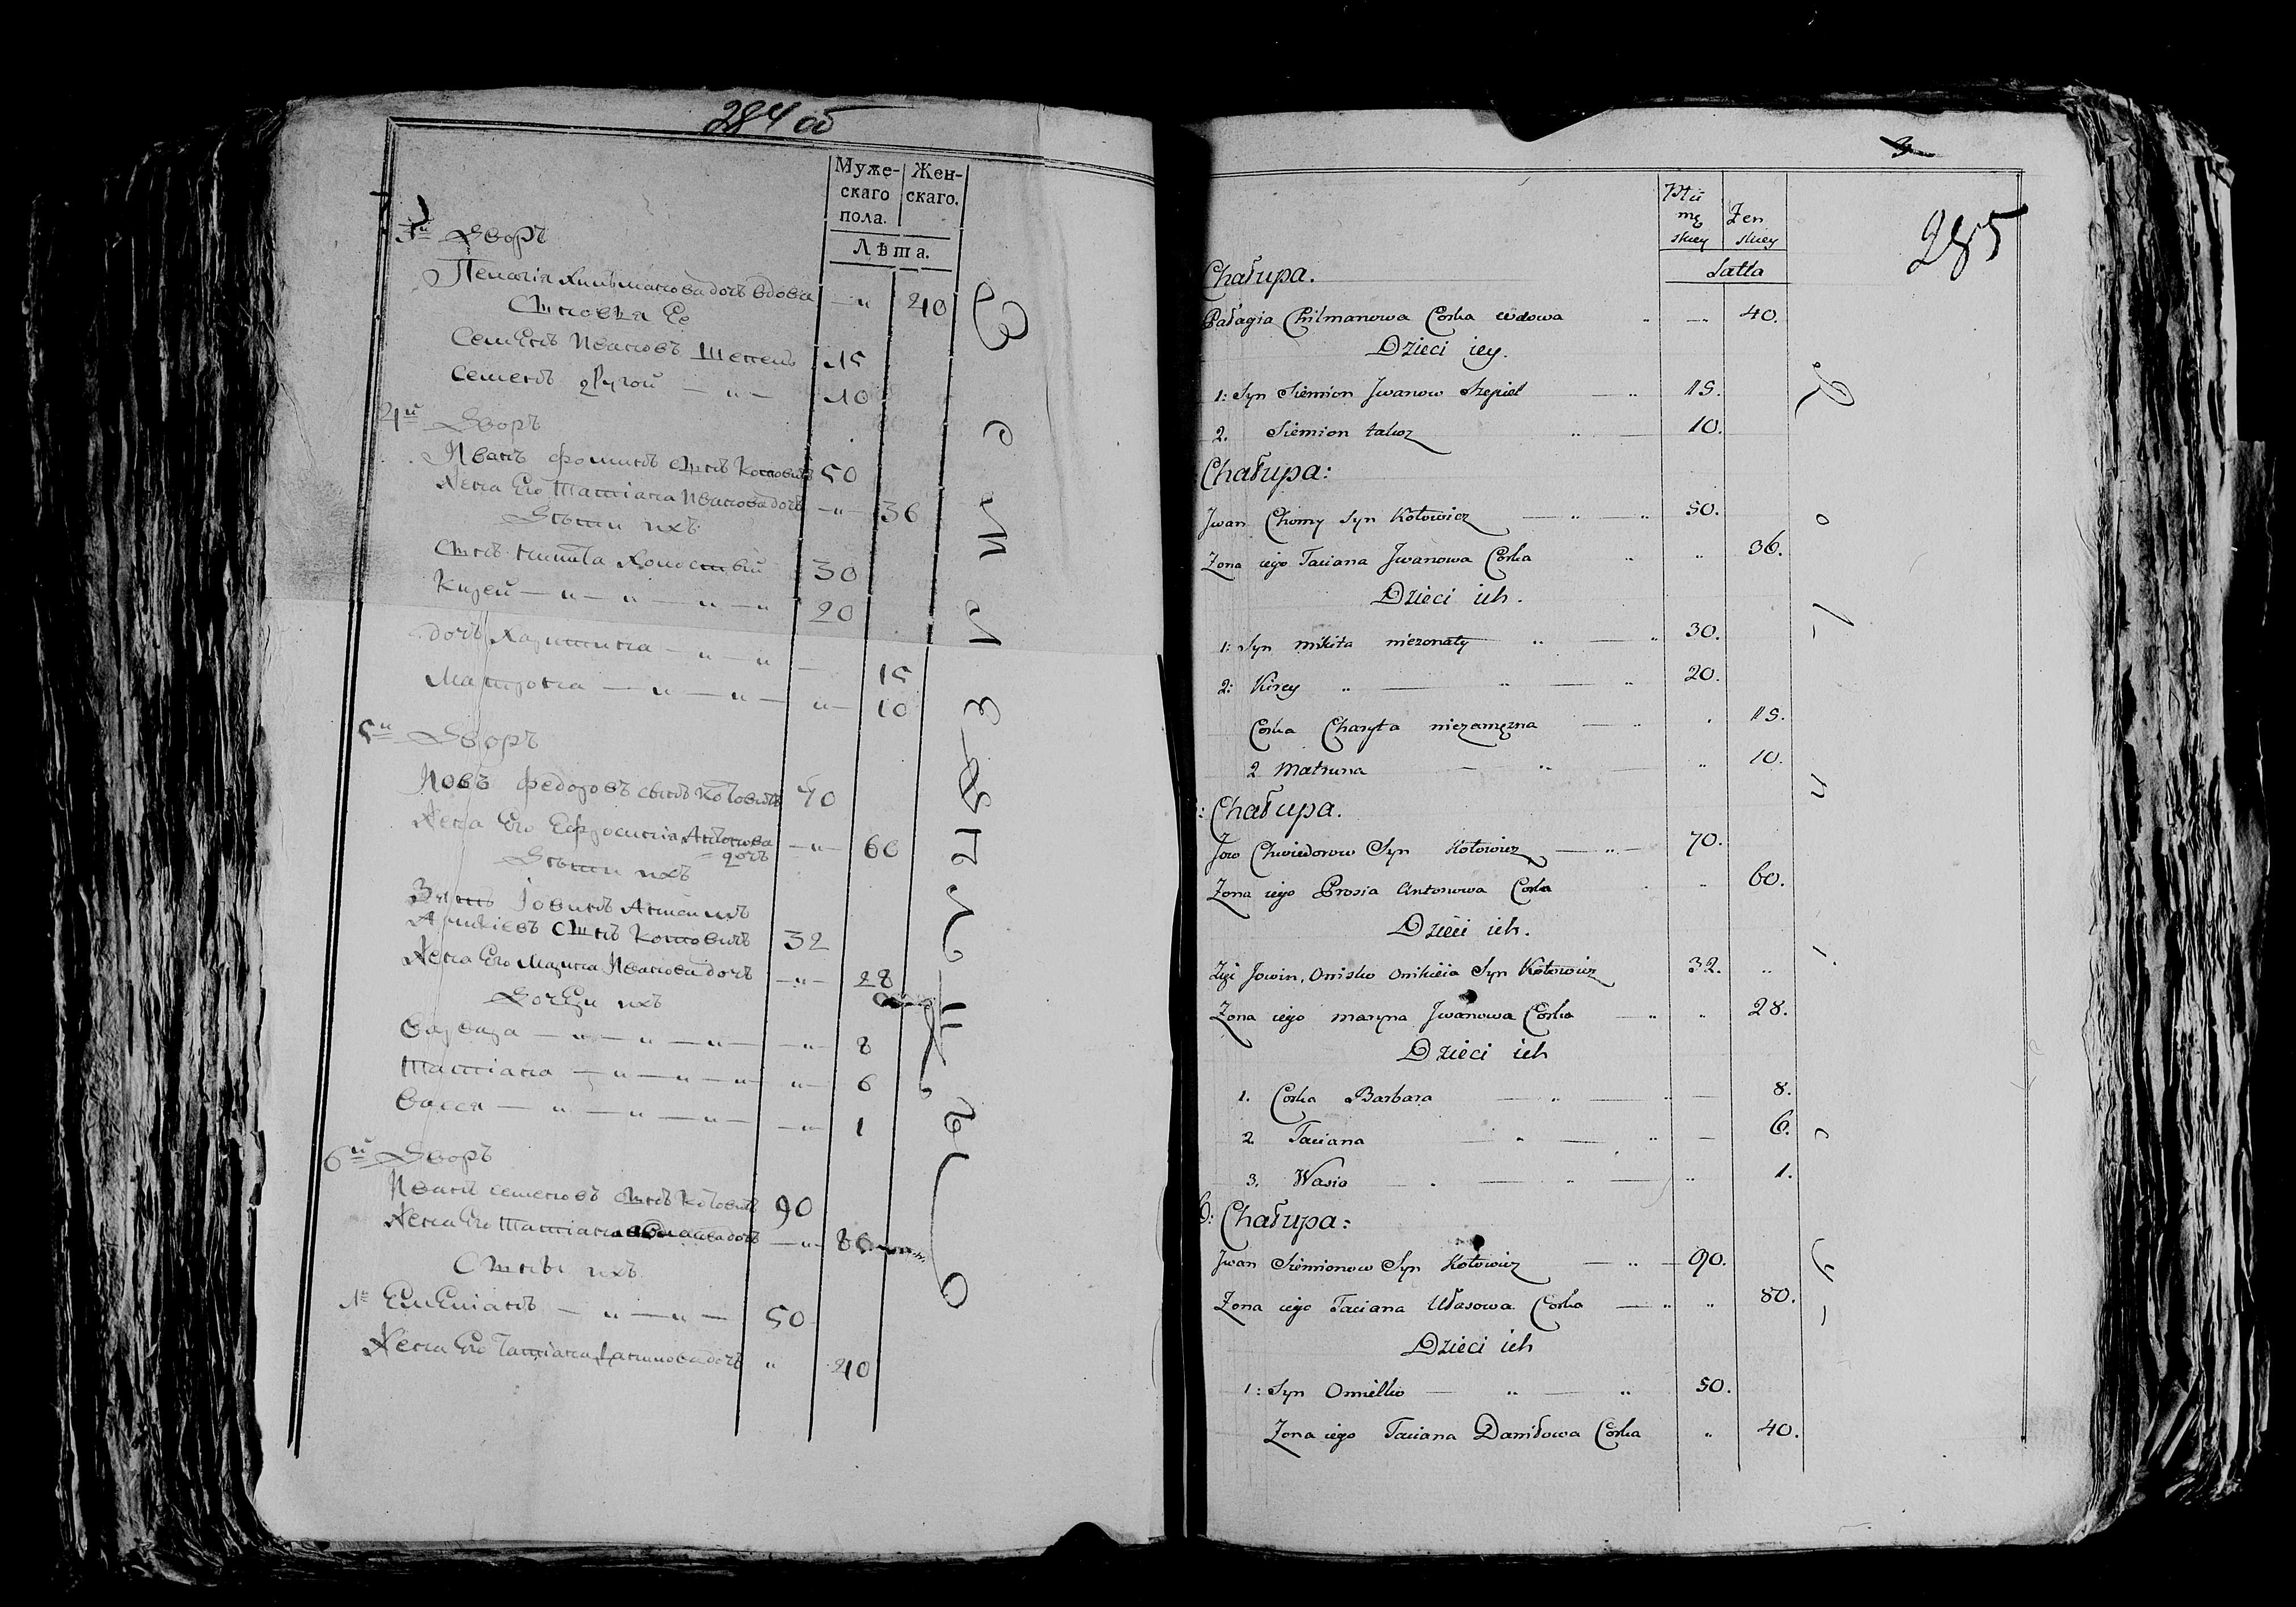 284 об
Муже-
скаго
пола.
Жен-
скаго.
Лѣта.
3й Дворъ
Пелагія Хильманова дочь вдова — " 40
Сыновья Ее
Семенъ Ивановъ Шепель 15
Семенъ другой — " — 10
4й Дворъ
Иванъ Фоминъ сынъ Котовичь 50
Жена Его Татіана Иванова дочь — " — 36
Дѣти ихъ
Сынъ Никита холостый 30
Кирей — " — " — " — " 20
дочь Харитина — " — " — 15
Матрона — " — " — " — 10
5й Дворъ
Иовъ Федоровъ сынъ Котовичь 70
Жена Его Ефросинія Антонова — " — 60
дочь
Дѣти ихъ
Зять Іовинъ
Аникіевъ Сынъ Котовичь 32
Жена Его Марина Иванова дочь — " — 28
Дочери ихъ
Варвара — " — " — " — — " — 8
Татіана — " — " — " — " — 6
Васся — " — " — " — — " — 1
6й Дворъ
Иванъ Семеновъ сынъ Котовичь 90
Жена Его Татіана дочь — " — 80
Сыны ихъ
1й Емеліанъ — " — " — 50
Жена Его Татіана дочь " 40
3
285
mę
skiey
Żen
skiey
Latta
Chałupa.
Pałagia Chilmanowa Corka wdowa " — " 40.
Dzieci iey.
1: Syn Siemion Jwanow Szepiel — " 15.
2. Siemion takoz " — 10.
Chałupa:
Jwan Chomy Syn Kotowicz — " — " 50.
Zona iego Taciana Jwanowa Corka " " 36.
Dzieci ich.
1: Syn mikita niezonaty " — " 30.
2: Kirey " — " — " 20.
Corka Charyta niezamęzna — " . 15.
2 Matruna — " — " 10.
: Chałupa.
Jow Chwiedorow Syn Kotowicz — " — 70.
Zona iego Prosia Antonowa Corka . " 60.
Dzieci ich.
Zięć Jowin, Onisko Onikieia Syn Kotowicz 32. "
Zona iego maryna Jwanowa Corka — " " 28.
Dzieci ich
1. Corka Barbara — " — " — 8.
2 Taciana — " — " — 6.
3. Wasio . — " — " 1.
6: Chałupa:
Jwan Siemionow Syn Kotowicz — " — 90.
Zona iego Taciana Ułasowa Corka — " " 80.
Dzieci ich
1: Syn Omielko — " — " 50.
Zona iego Taciana Daniłowa Corka " 40.